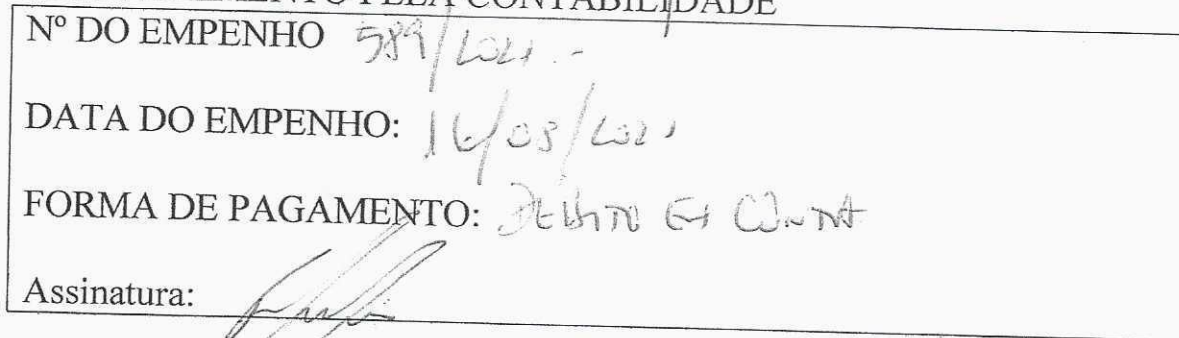 PELA CONTABILIDADE
Nº DO EMPENHO 589/2021.-
DATA DO EMPENHO: 16/03/2021
FORMA DE PAGAMENTO: DEBITO EM CONTA
Assinatura: